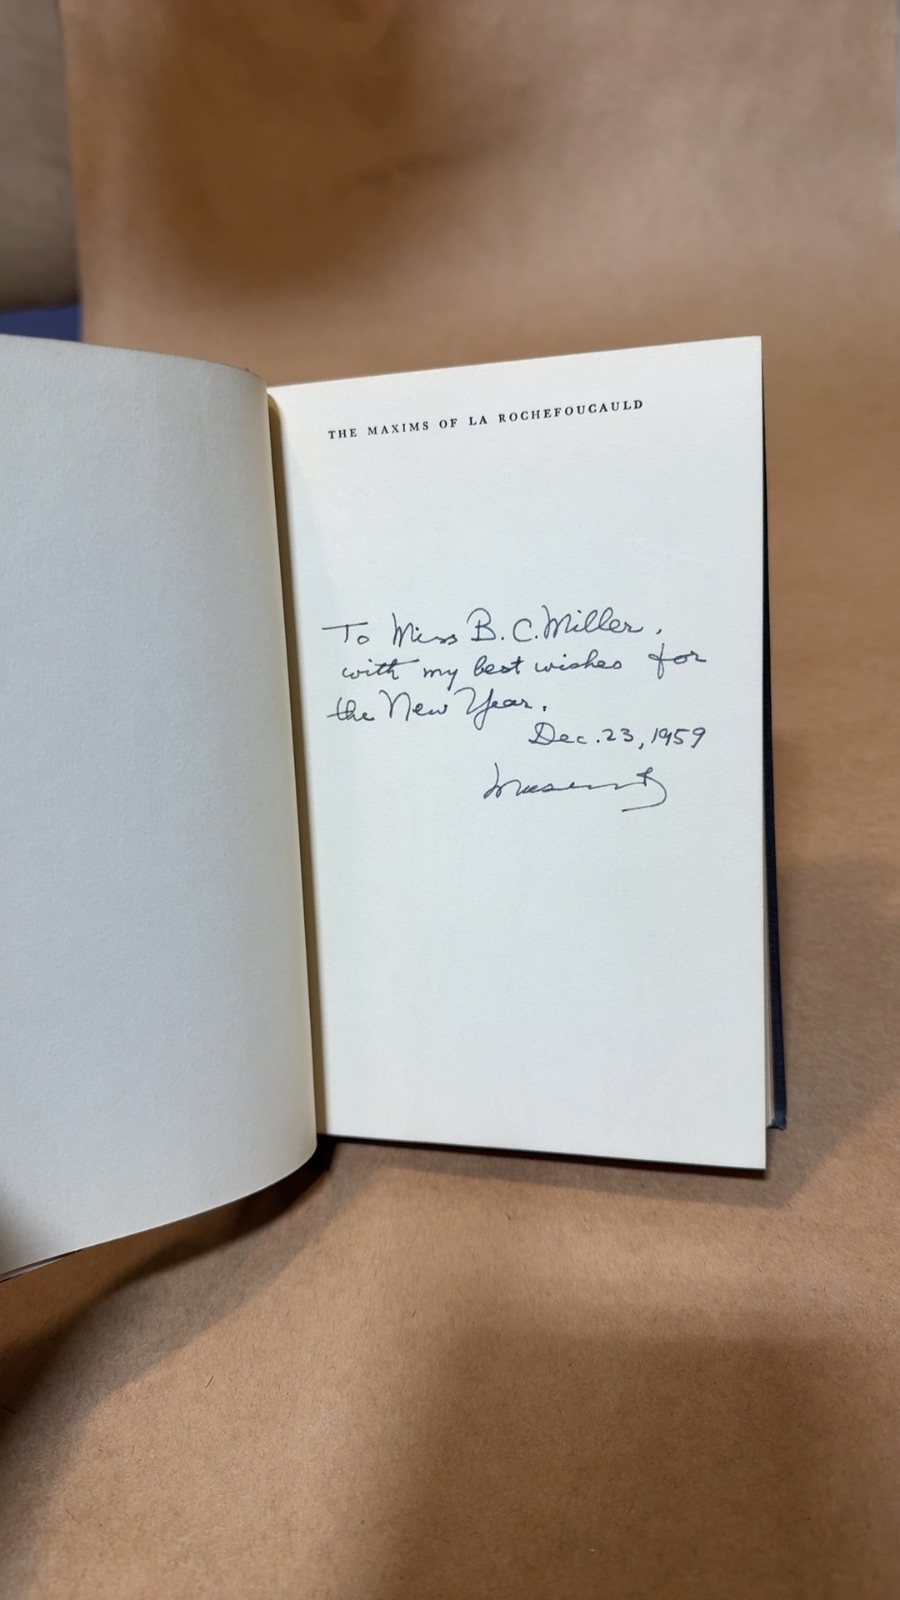 THE MAXIMS OF LA ROCHEFOUCAULD
To Miss B. C. Miller,
with my best wishes for
the New Year.
Dec. 23, 1959